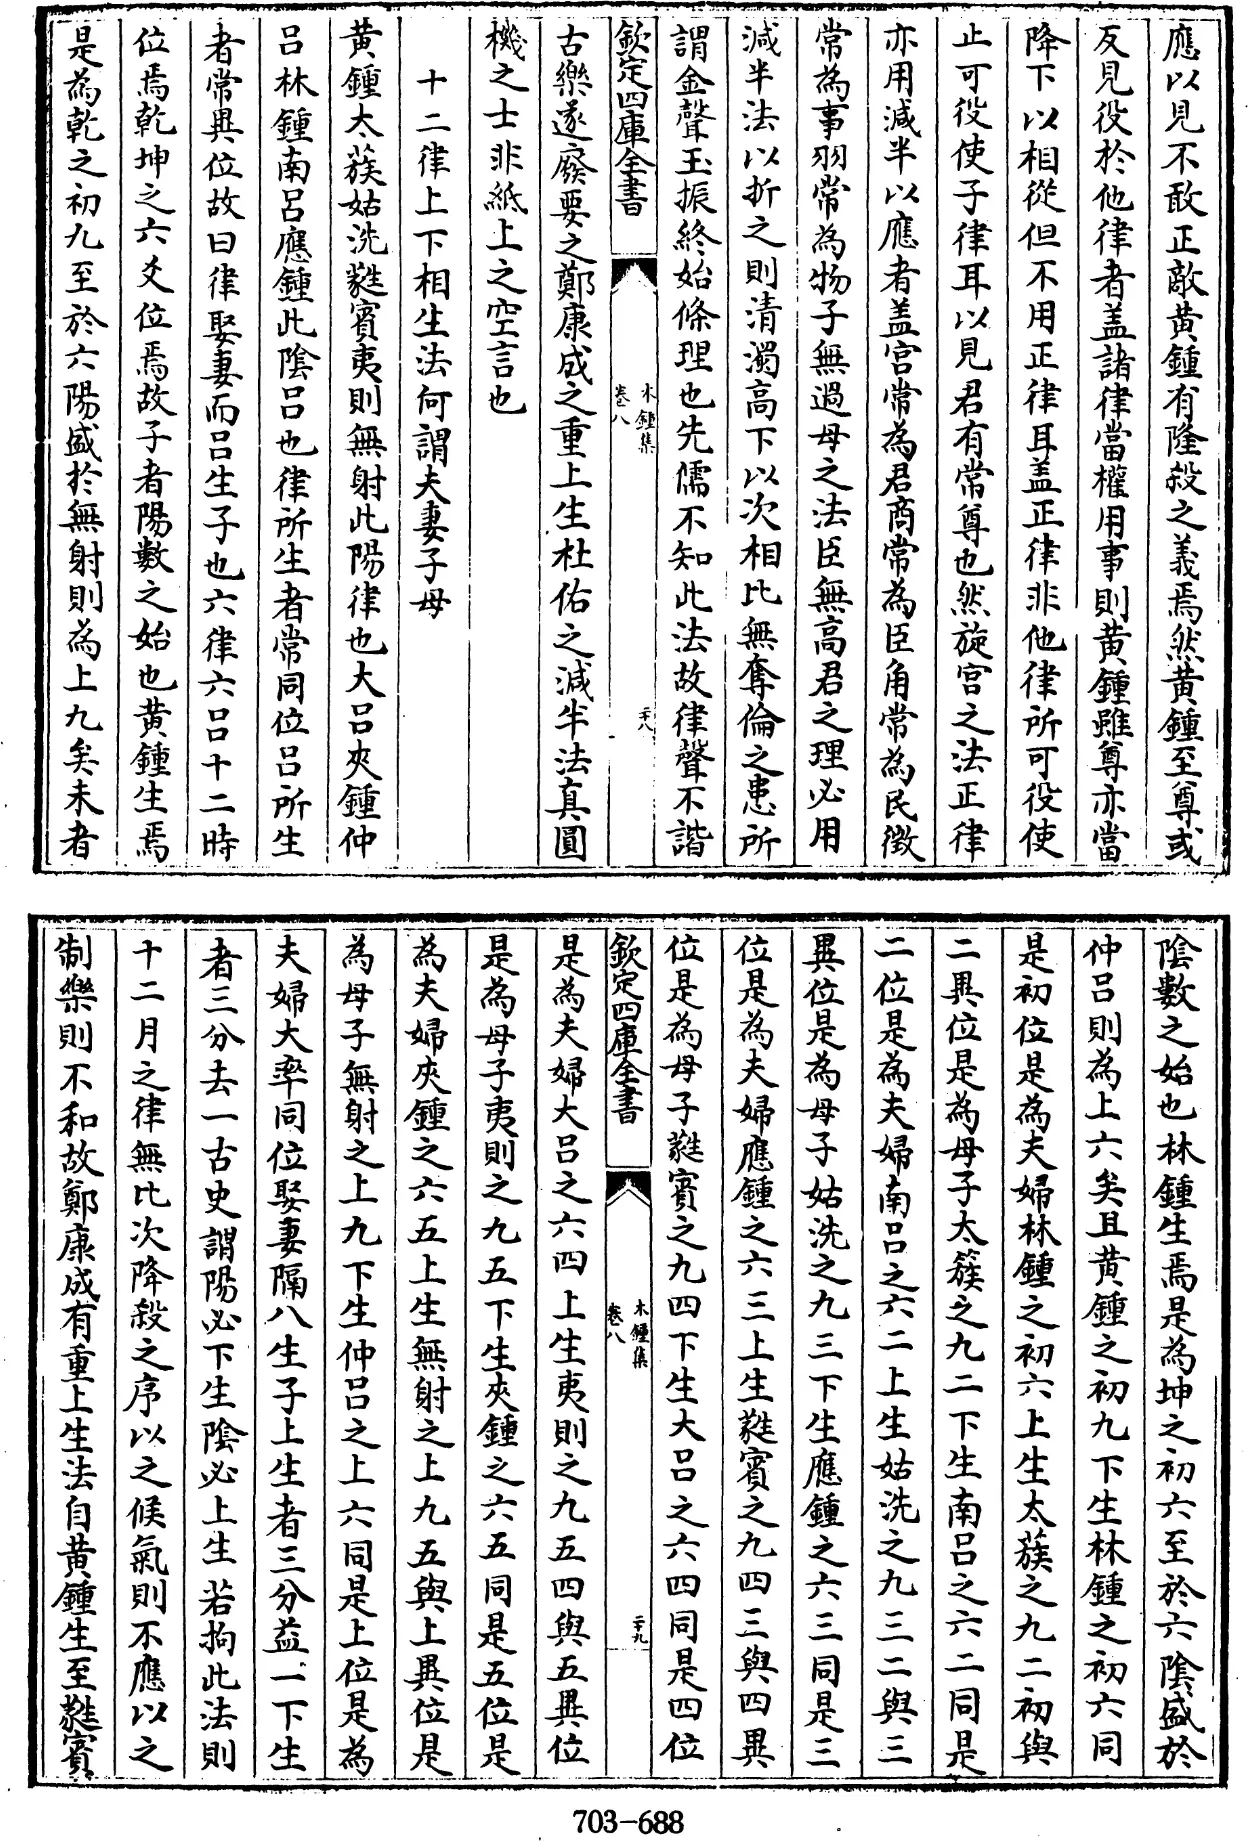 應以見不敢正敵黄鍾有隆殺之義焉然黄鍾至尊或
反見役於他律者盖諸律當權用事則黄鍾雖尊亦當
降下以相從但不用正律耳盖正律非他律所可役使
止可役使子律耳以見君有常尊也然旋宫之法正律
亦用減半以應者盖宫常為君商常為臣角常為民徴
常為事羽常為物子無過母之法臣無高君之理必用
減半法以折之則清濁高下以次相比無奪倫之患所
謂金聲玉振終始條理也先儒不知此法故律聲不諧
欽定四庫全書
木鍾集
卷八
二十八
古樂遂廢要之鄭康成之重上生杜佑之減半法真圓
機之士非紙上之空言也
十二律上下相生法何謂夫妻子母
黄鍾太蔟姑洗蕤賓夷則無射此陽律也大吕夾鍾仲
吕林鍾南吕應鍾此陰吕也律所生者常同位吕所生
者常異位故曰律娶妻而吕生子也六律六吕十二時
位焉乾坤之六爻位焉故子者陽數之始也黄鍾生焉
是為乾之初九至於六陽盛於無射則為上九矣未者
陰數之始也林鍾生焉是為坤之初六至於六陰盛於
仲吕則為上六矣且黄鍾之初九下生林鍾之初六同
是初位是為夫婦林鍾之初六上生太蔟之九二初與
二異位是為母子太簇之九二下生南吕之六二同是
二位是為夫婦南吕之六二上生姑洗之九三二與三
異位是為母子姑洗之九三下生應鍾之六三同是三
位是為夫婦應鍾之六三上生蕤賓之九四三與四異
位是為母子蕤賓之九四下生大吕之六四同是四位
欽定四庫全書
木鍾集
卷八
二十九
是為夫婦大吕之六四上生夷則之九五四與五異位
是為母子夷則之九五下生夾鍾之六五同是五位是
為夫婦夾鍾之六五上生無射之上九五與上異位是
為母子無射之上九下生仲吕之上六同是上位是為
夫婦大率同位娶妻隔八生子上生者三分益一下生
者三分去一古史謂陽必下生陰必上生若拘此法則
十二月之律無比次降殺之序以之候氣則不應以之
制樂則不和故鄭康成有重上生法自黄鍾生至蕤賓
703-688